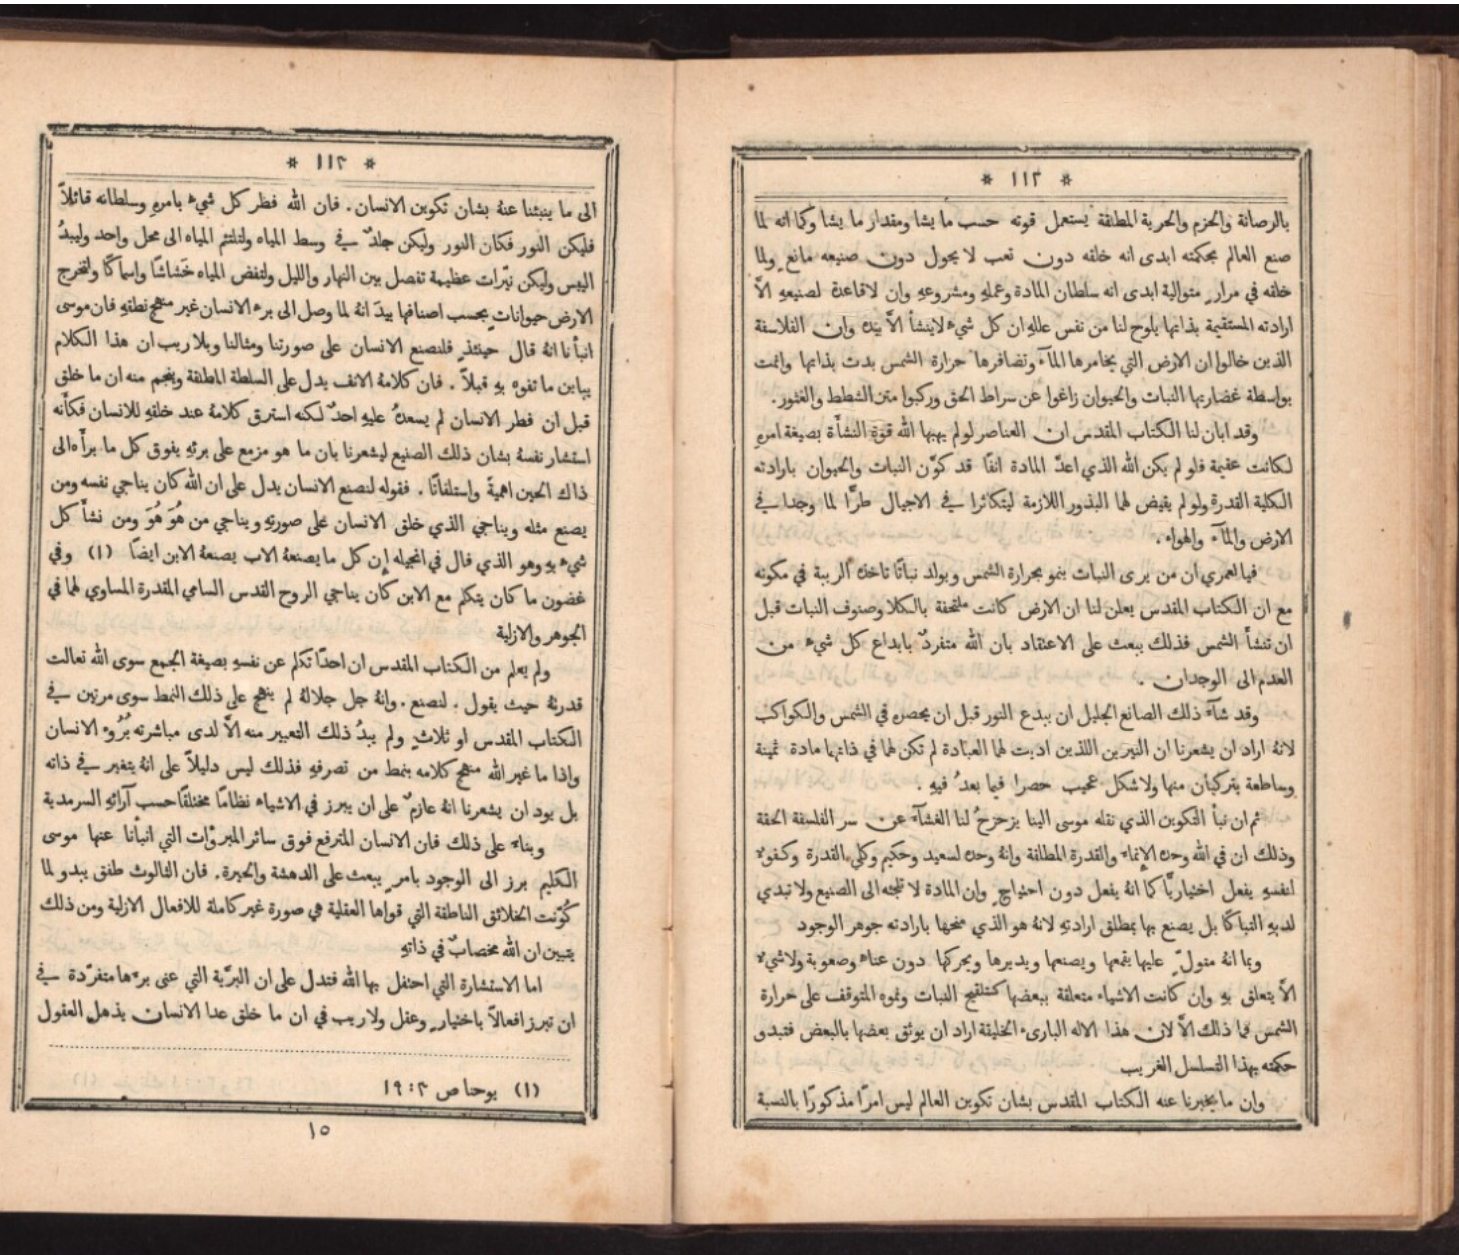 * ١١٢ *
بالرصانة والحزم والحرية المطلقة يستعمل قوته حسب ما يشا ومقدار ما يشا وكما انه لما
صنع العالم بحكمته ابدى انه خلقه دون تعب لا يحول دون صنيعه مانع ولما
خلقه في مرار متوالية ابدى انه سلطان المادة وعمله ومشروعه وان لا قاعدة لصنيعه الاَّ
ارادته المستقيمة بذاتها يلوح لنا من نفس عللهِ ان كل شيء لا ينشأ الاَّ بيده وان الفلاسفة
الذين خالوا ان الارض التي يخامرها المآء وتضافرها حرارة الشمس بدت بذاتها وانمت
بواسطة غضاربها النبات والحيوان زاغوا عن سراط الحق وركبوا متن الشطط والغثور .
وقد ابان لنا الكتاب المقدس ان العناصر لو لم يهبها الله قوة النشأة بصيغة امرهِ
لكانت عقيمة فلو لم يكن الله الذي اعدّ المادة انفًا قد كوّن النبات والحيوان بارادته
الكلية القدرة ولو لم يقيض لهما البذور اللازمة ليتكاثرا في الاجيال طرًّا لما وجدا في
الارض والمآء والهواء .
فيا لعمري ان من يرى النبات ينمو بحرارة الشمس ويولد نباتًا تاخذه الريبة في مكونه
مع ان الكتاب المقدس يعلن لنا ان الارض كانت ملتحفة بالكلا وصنوف النبات قبل
ان تنشأَ الشمس فذلك يبعث على الاعتقاد بان الله متفردٌ بابداع كل شيء من
العدم الى الوجدان .
وقد شآء ذلك الصانع الجليل ان يبدع النور قبل ان يحصره في الشمس والكواكب
لانهُ اراد ان يشعرنا ان النيرين اللذين اديت لهما العبادة لم تكن لهما في ذاتهما مادة ثمينة
وساطعة يتركبان منها ولا شكل عجيب حصرا فيما بعدُ فيهِ .
ثم ان نبأ التكوين الذي نقله موسى الينا يزحزحُ لنا الغشآء عن سر الفلسفة الحقة
وذلك ان في الله وحده الإِنماء والقدرة المطلقة وانهُ وحده لسعيد وحكيم وكلي القدرة وكفوء
لنفسهِ يفعل اختياريًّا كما انهُ يفعل دون احتياجٍ وان المادة لا تلجئه الى الصنيع ولا تبدي
لديهِ التباكًا بل يصنع بها بمطلق ارادتهِ لانهُ هو الذي منحها بارادته جوهر الوجود
وبما انهُ متولٍّ عليها يقمعها ويصنعها ويديرها ويحركها دون عناء وصعوبة ولا شيء
الاَّ يتعلق بهِ وان كانت الاشياء متعلقة ببعضها كتلقيح النبات ونموه المتوقف على حرارة
الشمس فما ذلك الاَّ لان هذا الاله البارىء الخليقة اراد ان يوثق بعضها بالبعض فتبدو
حكمته بهذا التسلسل الغريب
وان ما يخبرنا عنه الكتاب المقدس بشان تكوين العالم ليس امرًا مذكورًا بالنسبة
* ١١٣ *
الى ما ينبئنا عنهُ بشان تكوين الانسان . فان الله فطر كل شيء بامرهِ وسلطانه قائلاً
فليكن النور فكان النور وليكن جلدٌ في وسط المياه ولتلتئم المياه الى محل واحد وليبدُ
اليبس وليكن نيّرات عظيمة تفصل بين النهار والليل ولتفض المياه خَشاشًا واسماكًا ولتخرج
الارض حيوانات بحسب اصنافها بيدَ انهُ لما وصل الى برء الانسان غير منهج نطقهِ فان موسى
انبأنا انهُ قال حينئذٍ فلنصنع الانسان على صورتنا ومثالنا وبلا ريب ان هذا الكلام
يباين ما تفوه بهِ قبلاً . فان كلامهُ الانف يدل على السلطة المطلقة وينجم منه ان ما خلق
قبل ان فطر الانسان لم يسعدهُ عليهِ احدٌ لكنه استرق كلامهُ عند خلقهِ للانسان فكأنه
استشار نفسهُ بشان ذلك الصنيع ليشعرنا بان ما هو مزمع على برئهِ يفوق كل ما برأَه الى
ذاك الحين اهميةً واستلفاتًا . فقوله لنصنع الانسان يدل على ان الله كان يناجي نفسه ومن
يصنع مثله ويناجي الذي خلق الانسان على صورتهِ ويناجي من هُوَ هُوَ ومن نشأَ كل
شيء بهِ وهو الذي قال في انجيله إن كل ما يصنعهُ الاب يصنعهُ الابن ايضًا (١) وفي
غضون ما كان يتكلم مع الابن كان يناجي الروح القدس السامي المقدرة المساوي لهما في
الجوهر والازلية
ولم يعلم من الكتاب المقدس ان احدًا تكلم عن نفسهِ بصيغة الجمع سوى الله تعالت
قدرتهُ حيث يقول . لنصنع . وانهُ جل جلالهُ لم ينهج على ذلك النمط سوى مرتين في
الكتاب المقدس او ثلاثٍ ولم يبدُ ذلك التعبير منه الاَّ لدى مباشرته بُرُوء الانسان
واذا ما غير الله منهج كلامه بنمط من تصرفهِ فذلك ليس دليلاً على انهُ يتغير في ذاته
بل يود ان يشعرنا انهُ عازمٌ على ان يبرز في الاشياء نظامًا مختلفًا حسب آرائهِ السرمدية
وبناء على ذلك فان الانسان المترفع فوق سائر المبروّات التي انبأنا عنها موسى
الكليم برز الى الوجود بامرٍ يبعث على الدهشة والحيرة . فان الثالوث طفق يبدو لما
كُوّنت الخلائق الناطقة التي قواها العقلية هي صورة غير كاملة للافعال الازلية ومن ذلك
يتبين ان الله مخصابٌ في ذاتهِ
اما الاستشارة التي احتفل بها الله فتدل على ان البرّية التي عنى برءها متفرّدة في
ان تبرز افعالاً باختيارٍ وعقل ولا ريب في ان ما خلق عدا الانسان يذهل العقول
(١) يوحنا ص ٣ : ١٩
١٥